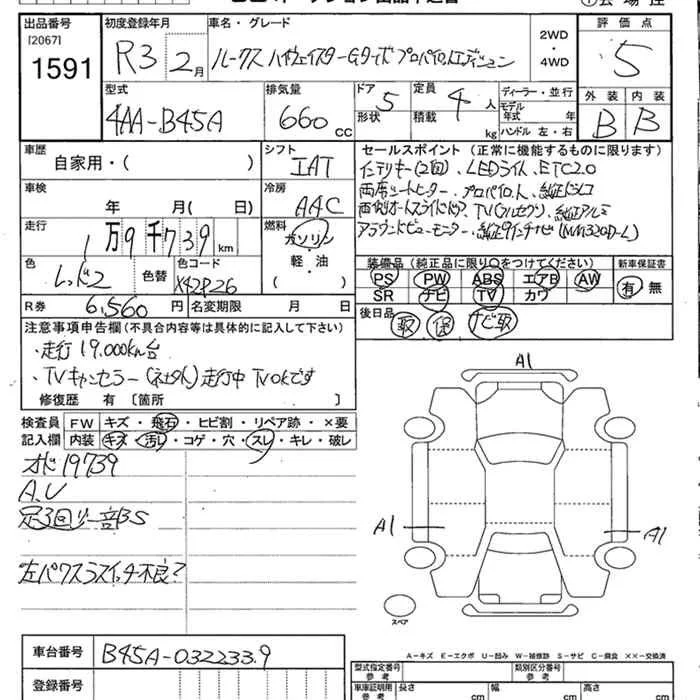 出品番号 初度登録年月 車名・グレード 評価点
[2067]
1591 R3 2月 ルークス ハイウェイスターGターボ プロパイロットエディション 2WD・4WD 5
型式 排気量 ドア 定員 ディーラー・並行 外装 内装
4AA-B45A 660 CC 5 形状 4人 積載 kg モデル年式 年 ハンドル 左・右 B B
車歴 シフト セールスポイント (正常に機能するものに限ります)
自家用・( ) IAT インテリキー(2回)、LEDライト、ETC2.0
車検 冷房 両席シートヒーター、プロパイロット、純正ドラレコ
年 月( 日) AAC 両側オートスライドドア、TV(フルセグ)、純正アルミ
走行 燃料 アラウンドビューモニター、純正9インチナビ(MM320D-L)
1万9千739km ガソリン・軽・油
色 色替 色コード 装備品 (純正品に限り○をつけてください) 新車保証書
X42P26 PS PW ABS エアB AW 有 無
SR ナビ TV カワ
R券 6,560円 名変期限 月 日 後日品 取 保 ナビ取
注意事項申告欄 (不具合内容等は具体的に記入して下さい)
・走行19,000km台
・TVキャンセラー(社外)走行中TVOKです
修復歴 有 〔箇所 〕
検査員 FW キズ・飛石・ヒビ割・リペア跡・×要
記入欄 内装 キズ・汚レ・コゲ・穴・スレ・キレ・破レ
オド19739
A.U
足3回り一部BS
左パワスラスイッチ不良?
A1
A1
A1
スペア
A-キズ E-エクボ U-凹み W-補修跡 S-サビ C-腐食 ××-交換済
車台番号 B45A-0322339
登録番号
型式指定番号 参考 類別区分番号 参考
車庫証明用 参考 長さ cm 幅 cm 高さ cm